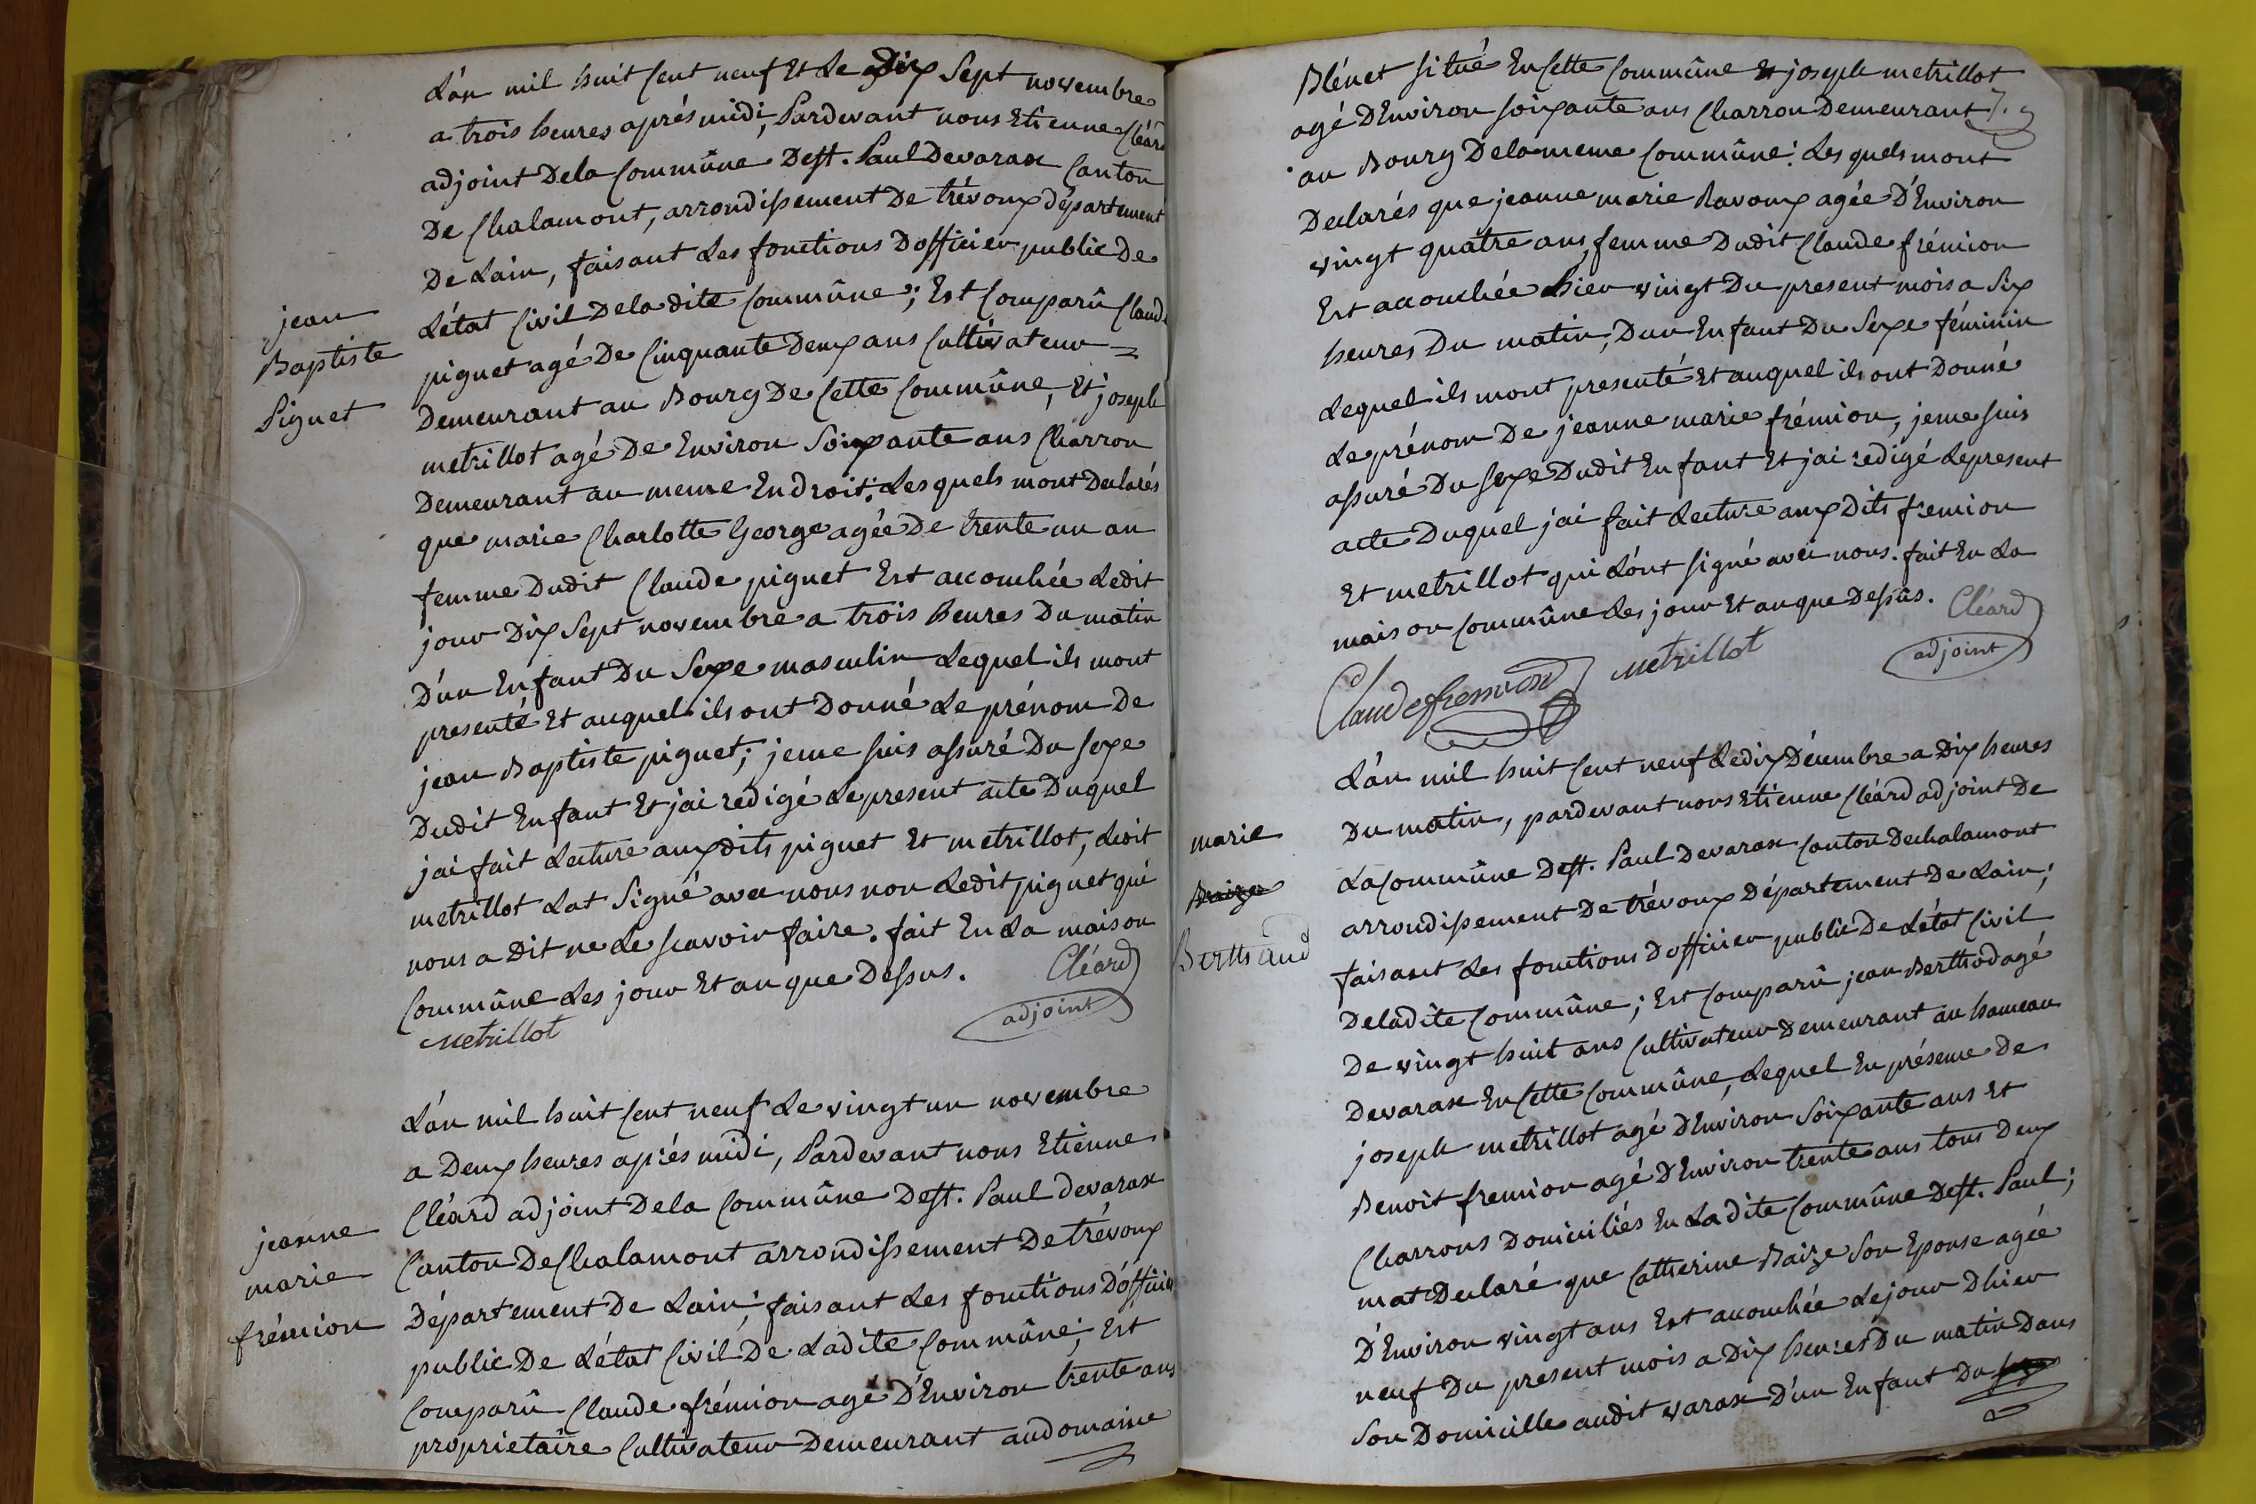 L'an mil huit cent neuf et le dix sept novembre
a trois heures aprés midi, Pardevant nous Etienne Cléard
adjoint dela Commûne de st. Paul devarax Canton
de Chalamont, arrondissement de trévoux département
de Lain, faisant les fonctions dofficier public de
L'état Civil dela dite Commûne; Est Comparû Claude
piguet agé de Cinquante deux ans Cultivateur
demeurant au Bourg de Cette Commûne, et joseph
metrillot agé de Environ Soixante ans Charron
demeurant au meme Endroit; Les quels mont declarés
que marie Charlotte George agée de trente un an
femme dudit Claude piguet Est accouchée Ledit
jour dix Sept novembre a trois heures du matin
d'un Enfant du Sexe masculin Lequel ils mont
presenté et auquel ils ont donné Le prénom de
jean Baptiste piguet; jeme suis assuré du sexe
dudit Enfant et jai redigé Le present acte duquel
jai fait Lecture auxdits piguet et metrillot, Ledit
metrillot Lat Signé avec nous non Ledit piguet qui
nous a dit ne Le scavoir faire. fait En La maison
Commûne Les jour et an que dessus. Cléard
metrillot adjoint
jean
Baptiste
Piguet
L'an mil huit cent neuf Le vingt un novembre
a deux heures aprés midi, Pardevant nous Etienne
Cléard adjoint dela Commûne de st. Paul devarax
Canton de Chalamont arrondissement de trévoux
département de Lain; faisant Les fonctions d'officier
public de L'état Civil de Ladite Commûne; Est
Comparû Claude frémion agé d'Environ trente ans
proprietaire Cultivateur demeurant audomaine
jeanne
marie
frémion
Blénet situé En Cette Commûne et joseph metrillot
agé dEnviron soixante ans Charron demeurant
au Bourg delameme Commûne: Les quels mont
declarés que jeanne marie Ravoux agée d'Environ
vingt quatre ans, femme dudit Claude frémion
Est accouchée hier vingt du present mois a Six
heures du matin, dun Enfant du Sexe féminin
Lequel ils mont presenté et auquel ils ont donné
Le prénom de jeanne marie frémion, jeme suis
assuré du sexe dudit Enfant et jai redigé Lepresent
acte duquel jai fait Lecture auxdits fremion
et metrillot qui L'ont signé avec nous. fait En La
maison Commûne Les jour et an que dessus. Cléard
Claude fremion metrillot adjoint
L'an mil huit cent neuf Ledix décembre a dix heures
du matin, pardevant nous Etienne Cléard adjoint de
La Commûne de st. Paul devarax Canton dechalamont
arrondissement de trévoux département de Lain;
faisant Les fonctions d'officier public de L'état Civil
deladite Commûne; Est Comparû jean Berthod agé
de vingt huit ans Cultivateur demeurant au hameau
devarax En Cette Commûne, Lequel En présence de
joseph metrillot agé dEnviron Soixante ans et
Benoit fremion agé d'Environ trente ans tous deux
Charrons domiciliés En Ladite Commûne de st. Paul;
mat declaré que Catherine Baize Son Epouse agée
d'Environ vingt ans Est accouchée Le jour dhier
neuf du present mois a dix heures du matin dans
Son domicille audit varax d'un Enfant du sexe
marie
Baize
Berthaud